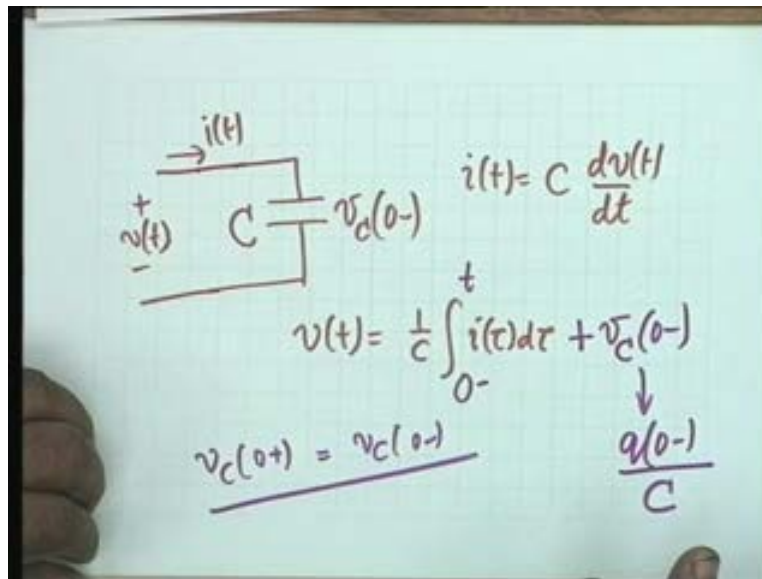 i(t)
+
v(t)
-
C
v_C(0-)
i(t) = C dv(t)/dt
v(t) = 1/C ∫_{0-}^{t} i(τ)dτ + v_C(0-)
↓
q(0-)/C
v_C(0+) = v_C(0-)